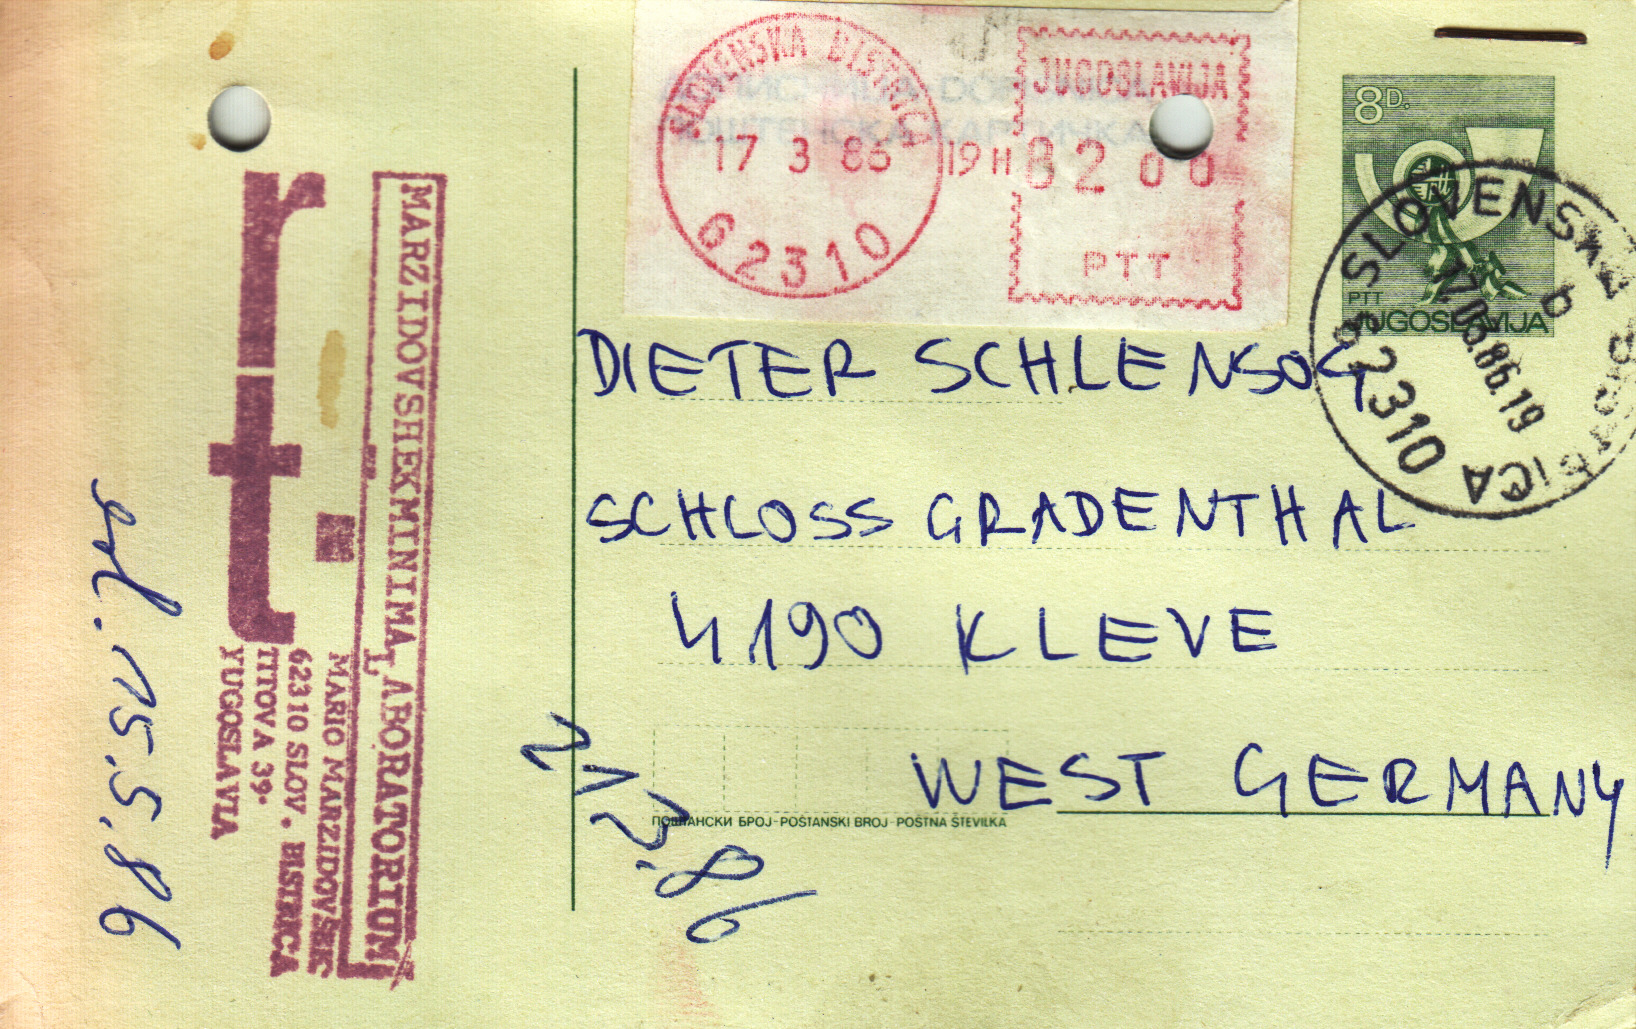 SLOVENSKA BISTRICA
17 3 86 19H
62310
JUGOSLAVIJA
82 00
PTT
ДОПИСНИЦА DOPISNICA
ПОШТЕНСКА КАРТИЧКА
8D.
PTT
JUGOSLAVIJA
SLOVENSKA BISTRICA
b
17.03.86.19
62310
DIETER SCHLENSOG
SCHLOSS GRADENTHAL
4190 KLEVE
WEST GERMANY
ПОШТАНСКИ БРОЈ-POŠTANSKI BROJ-POŠTNA ŠTEVILKA
21.3.86
MARZIDOVSHEKMINIMA
LABORATORIUM
MARIO MARZIDOVŠEK
62310 SLOV. BISTRICA
TITOVA 39.
YUGOSLAVIA
15.5.86